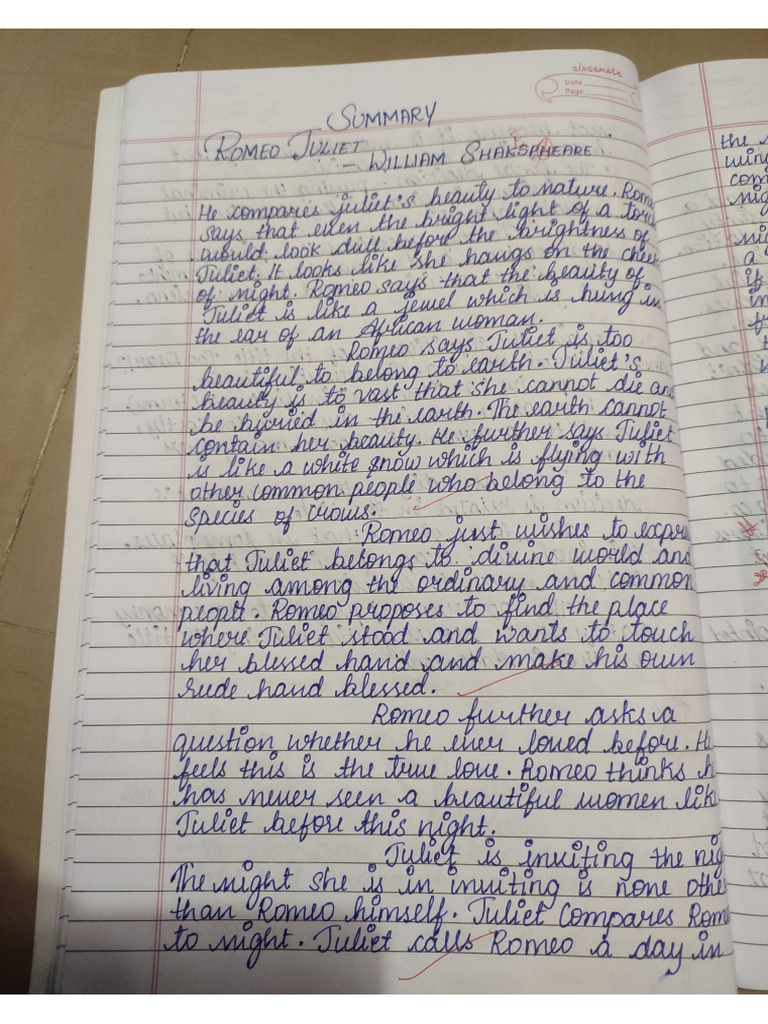 classmate
Date
Page
SUMMARY
ROMEO JULIET
- WILLIAM SHAKSPHEARE
He compares Juliet's beauty to nature. Rome
says that even the bright light of a torc
would look dull before the brightness of
Juliet. It looks like she hangs on the cheek
of night. Romeo says that the beauty of
Juliet is like a jewel which is hung in
the ear of an African woman.
Romeo says Juliet is too
beautiful to belong to earth. Juliet's
beauty is to vast that she cannot die and
be buried in the earth. The earth cannot
contain her beauty. He further says Juliet
is like a white snow which is flying with
other common people who belong to the
species of crows.
Romeo just wishes to expre
that Juliet belongs to divine world and
living among the ordinary and common
people. Romeo proposes to find the place
where Juliet stood and wants to touch
her blessed hand and make his own
rude hand blessed.
Romeo further asks a
question whether he ever loved before. H
feels this is the true love. Romeo thinks h
has never seen a beautiful women like
Juliet before this night.
Juliet is inviting the nig
The night she is in inviting is none othe
than Romeo himself. Juliet compares Rom
to night. Juliet calls Romeo a day in